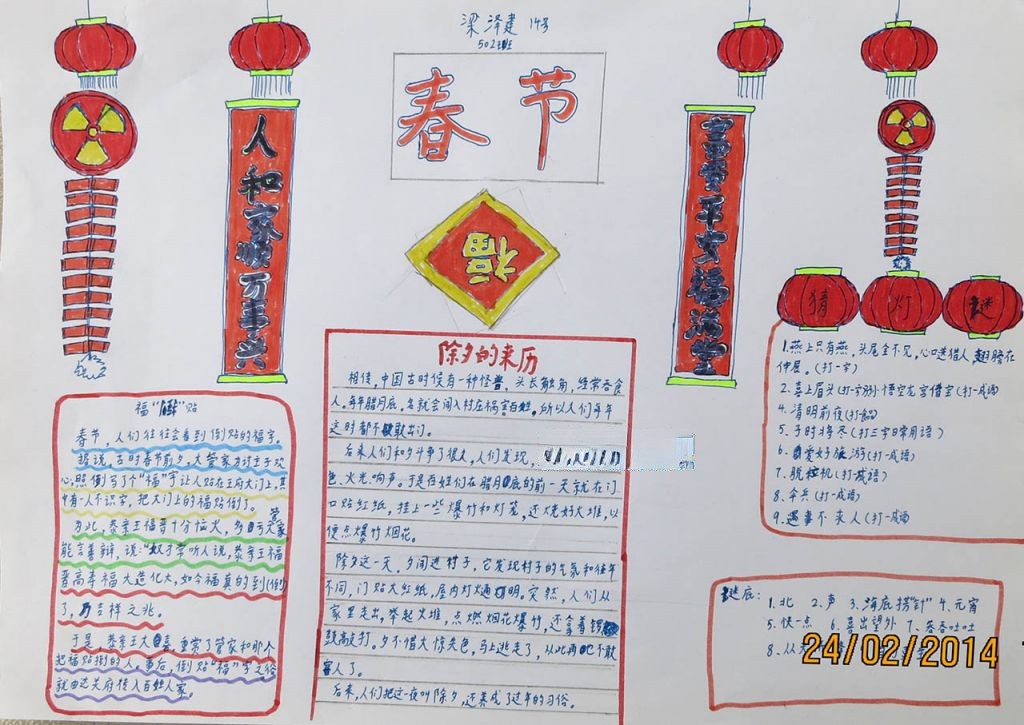 梁泽建 14号
502班
春节
人和家顺万事兴
富贵平安福满堂
福
猜灯谜
福“倒”贴
春节,人们往往会看到倒贴的福字。
据说,古时春节前夕,大管家为讨主子欢
心,照例写了个“福”字让人贴在王府大门上,其
中有一人不识字,把大门上的福贴倒了。
为此,恭亲王福晋十分恼火,多亏大管家
能言善辩,说:“奴才常听人说,恭亲王福
晋高寿福大造化大,如今福真的到(倒)
了,乃吉祥之兆。
于是,恭亲王大喜,重赏了管家和那个
把福贴倒的人。事后,倒贴“福”字之俗
就由达夫府传入百姓人家。
除夕的来历
相传,中国古时候有一种怪兽,头长触角,经常吞食
人。每年腊月底,夕就会闯入村庄祸害百姓。所以人们每年
这时都不敢出门。
后来人们和夕斗争了很久,人们发现,
色、火光响声。于是百姓们在腊月底的前一天就在门
口贴红纸,挂上一些爆竹和灯笼,还烧好火堆,以
便点爆竹烟花。
除夕这一天,夕闯进村子,它发现村子的气氛和往年
不同,门贴大红纸,屋内灯通明。突然,人们从
家里走出,举起火堆,点燃烟花爆竹,还拿着锣
鼓高敲打。夕不借大惊失色,马上逃走了,从此再也不敢
害人了。
后来,人们把这一夜叫除夕,还养成了过年的习俗。
1.燕上只有燕,头尾全不见,心口送猎人翅膀在
伸展。(打一字)
2.喜上眉头(打一字)3.悟空龙宫借宝(打一成语
4.清明前夜(打一节)
5.子时将尽(打三字日常用语)
6.爱好旅游(打一成语)
7.脱粒机(打一成语)
8.伞兵(打一成语)
9.遇事不求人(打一成语
谜底:
1.北 2.声 3.海底捞“针” 4.元宵
5.快一点 6.喜出望外 7.吞吞吐吐
8.从天
24/02/2014